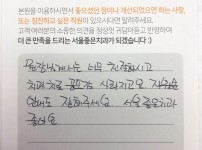 본원을 이용하시면서 좋으셨던 점이나 개선되었으면 하는 사항,
또는 칭찬하고 싶은 직원이 있으시다면 말씀해주세요.
고객 여러분의 소중한 의견을 참성껏 귀담아듣고 반영하여
더 큰 만족을 드리는 서울좋은치과가 되겠습니다 :)
원장님께서는 너무 친절하시고
치과 치료
잘해주세요 서울좋은치과
좋아요